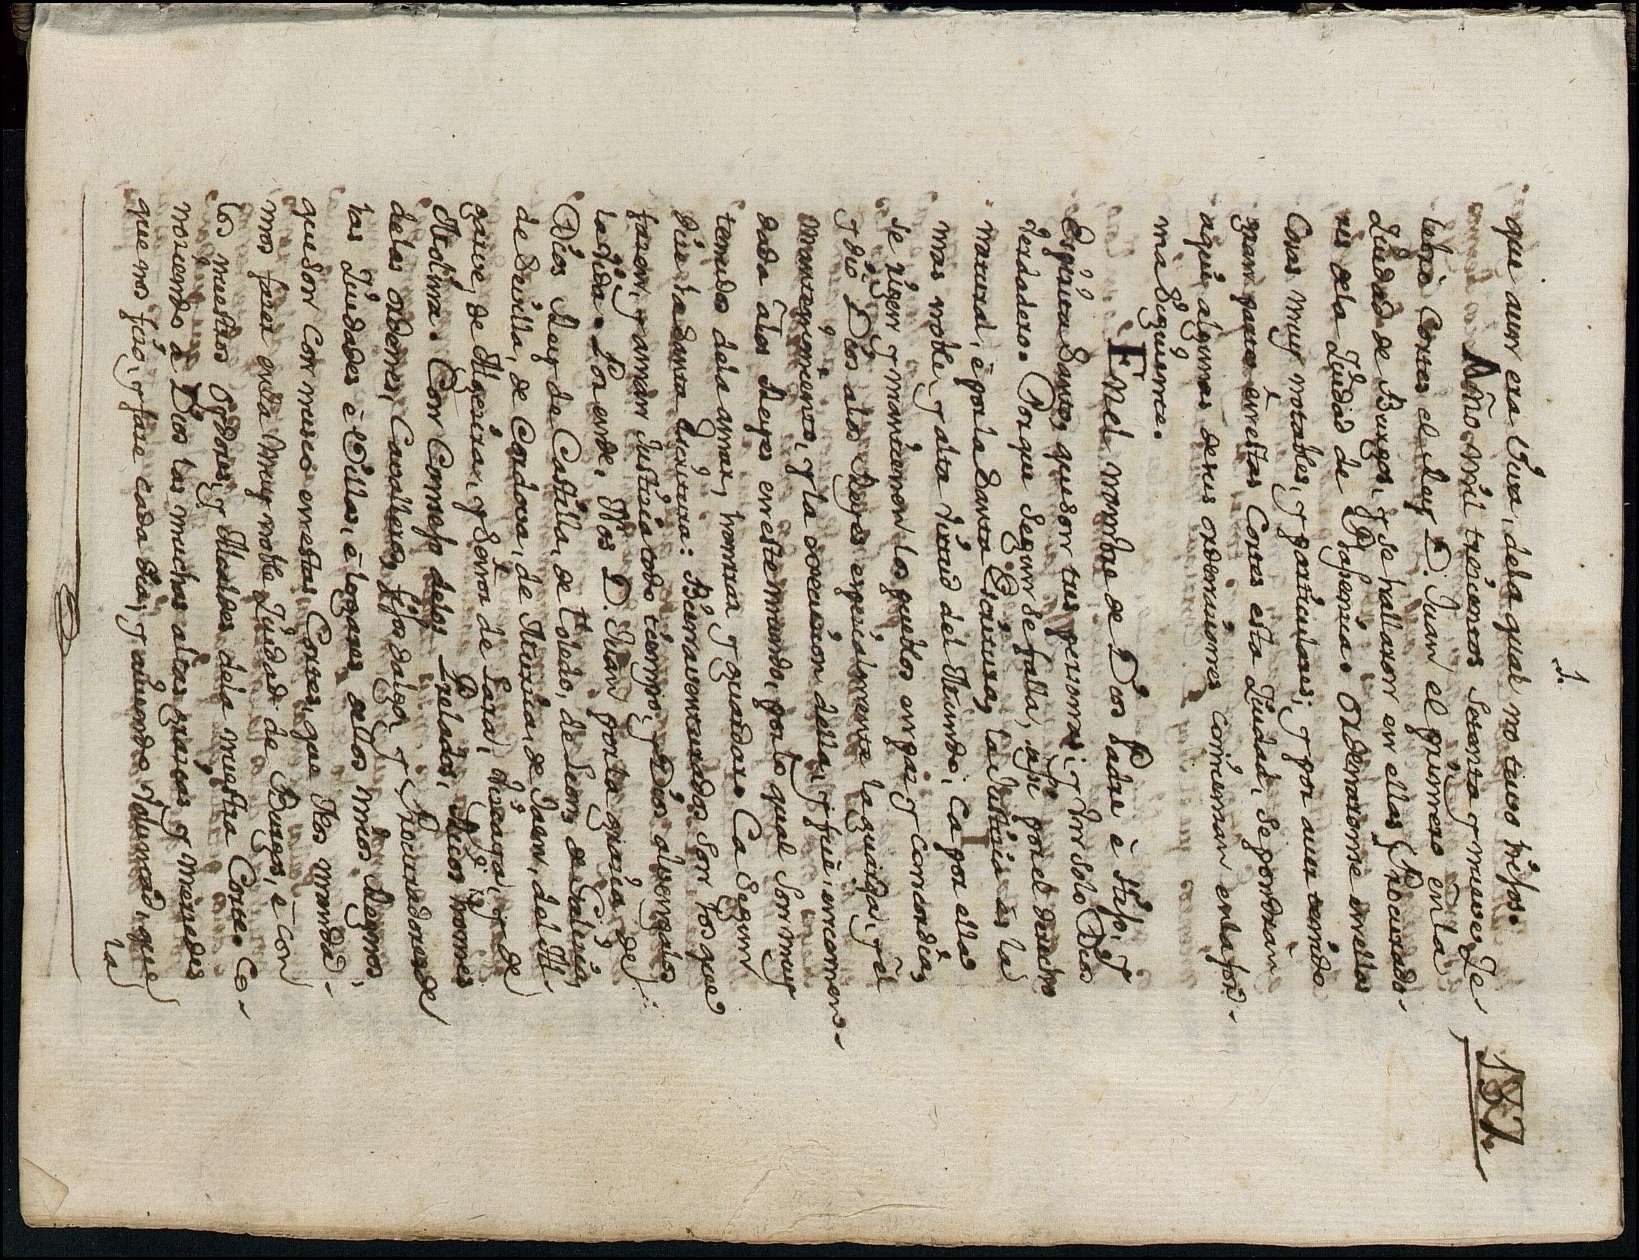 1.
137.
que aun era viva, dela qual no tuvo hijos.
Año mil trecientos setenta y nueve ce
lebrò Cortes el Rey D. Juan el primero en la
Ziudad de Burgos, y se hallaron en ellas Procurado-
res dela Ziudad de Plasenzia. Ordenaronse en ellas
Cosas muy notables, y particulares; y por aver tenido
gran parte en estas Cortes esta Ziudad, se pondràn
aqui algunas de sus ordenaciones comienzan en la for-
ma siguiente.
En el nombre de Dios Padre è Hijo, y
Espiritu Santo, que son tres personas; y un solo Dios
verdadero. Porque segun se falla, asi por el derecho
natural, è por la Santa Escritura, la Justizia es la
mas noble, y alta virtud del Mundo; Ca por ella
se rigen y mantienen los pueblos en paz y concordia,
y diò Dios alos Reyes espezialmente la guarda, y el
mantenimiento, y la execuzion della, y fuè encomen-
dada à los Reyes en este mundo, por lo qual son muy
tenudos dela amar, honrar y guardar. Ca segun
dize la Santa escritura: Bienaventurados son los que
fazen, y aman Justizia todo tiempo, y Dios aluengales
la vida. Por ende, Nos D. Juan por la grazia de
Dios Rey de Castilla, de Toledo, de Leon, de Galizia,
de Sevilla, de Cordova, de Murzia, de Jaen, del Al-
garve, de Algezira, y Señor de Lara, Vizcaya, y de
Molina. Con Consejo delos Prelados, Ricos homes
delas ordenes, Cavalleros, fijos dalgo, y Procuradores de
las Ziudades è Villas, è logares dellos mios Regnos,
que son con nusco en estas Cortes, que Nos manda-
mos fazer en la muy noble Ziudad de Burgos, è con
los nuestros Oydores, y Alcaldes dela nuestra Corte. Co-
noziendo à Dios las muchas altas grazias y mercedes
que nos fizo, y faze cada dia; y aviendo voluntad, que
la